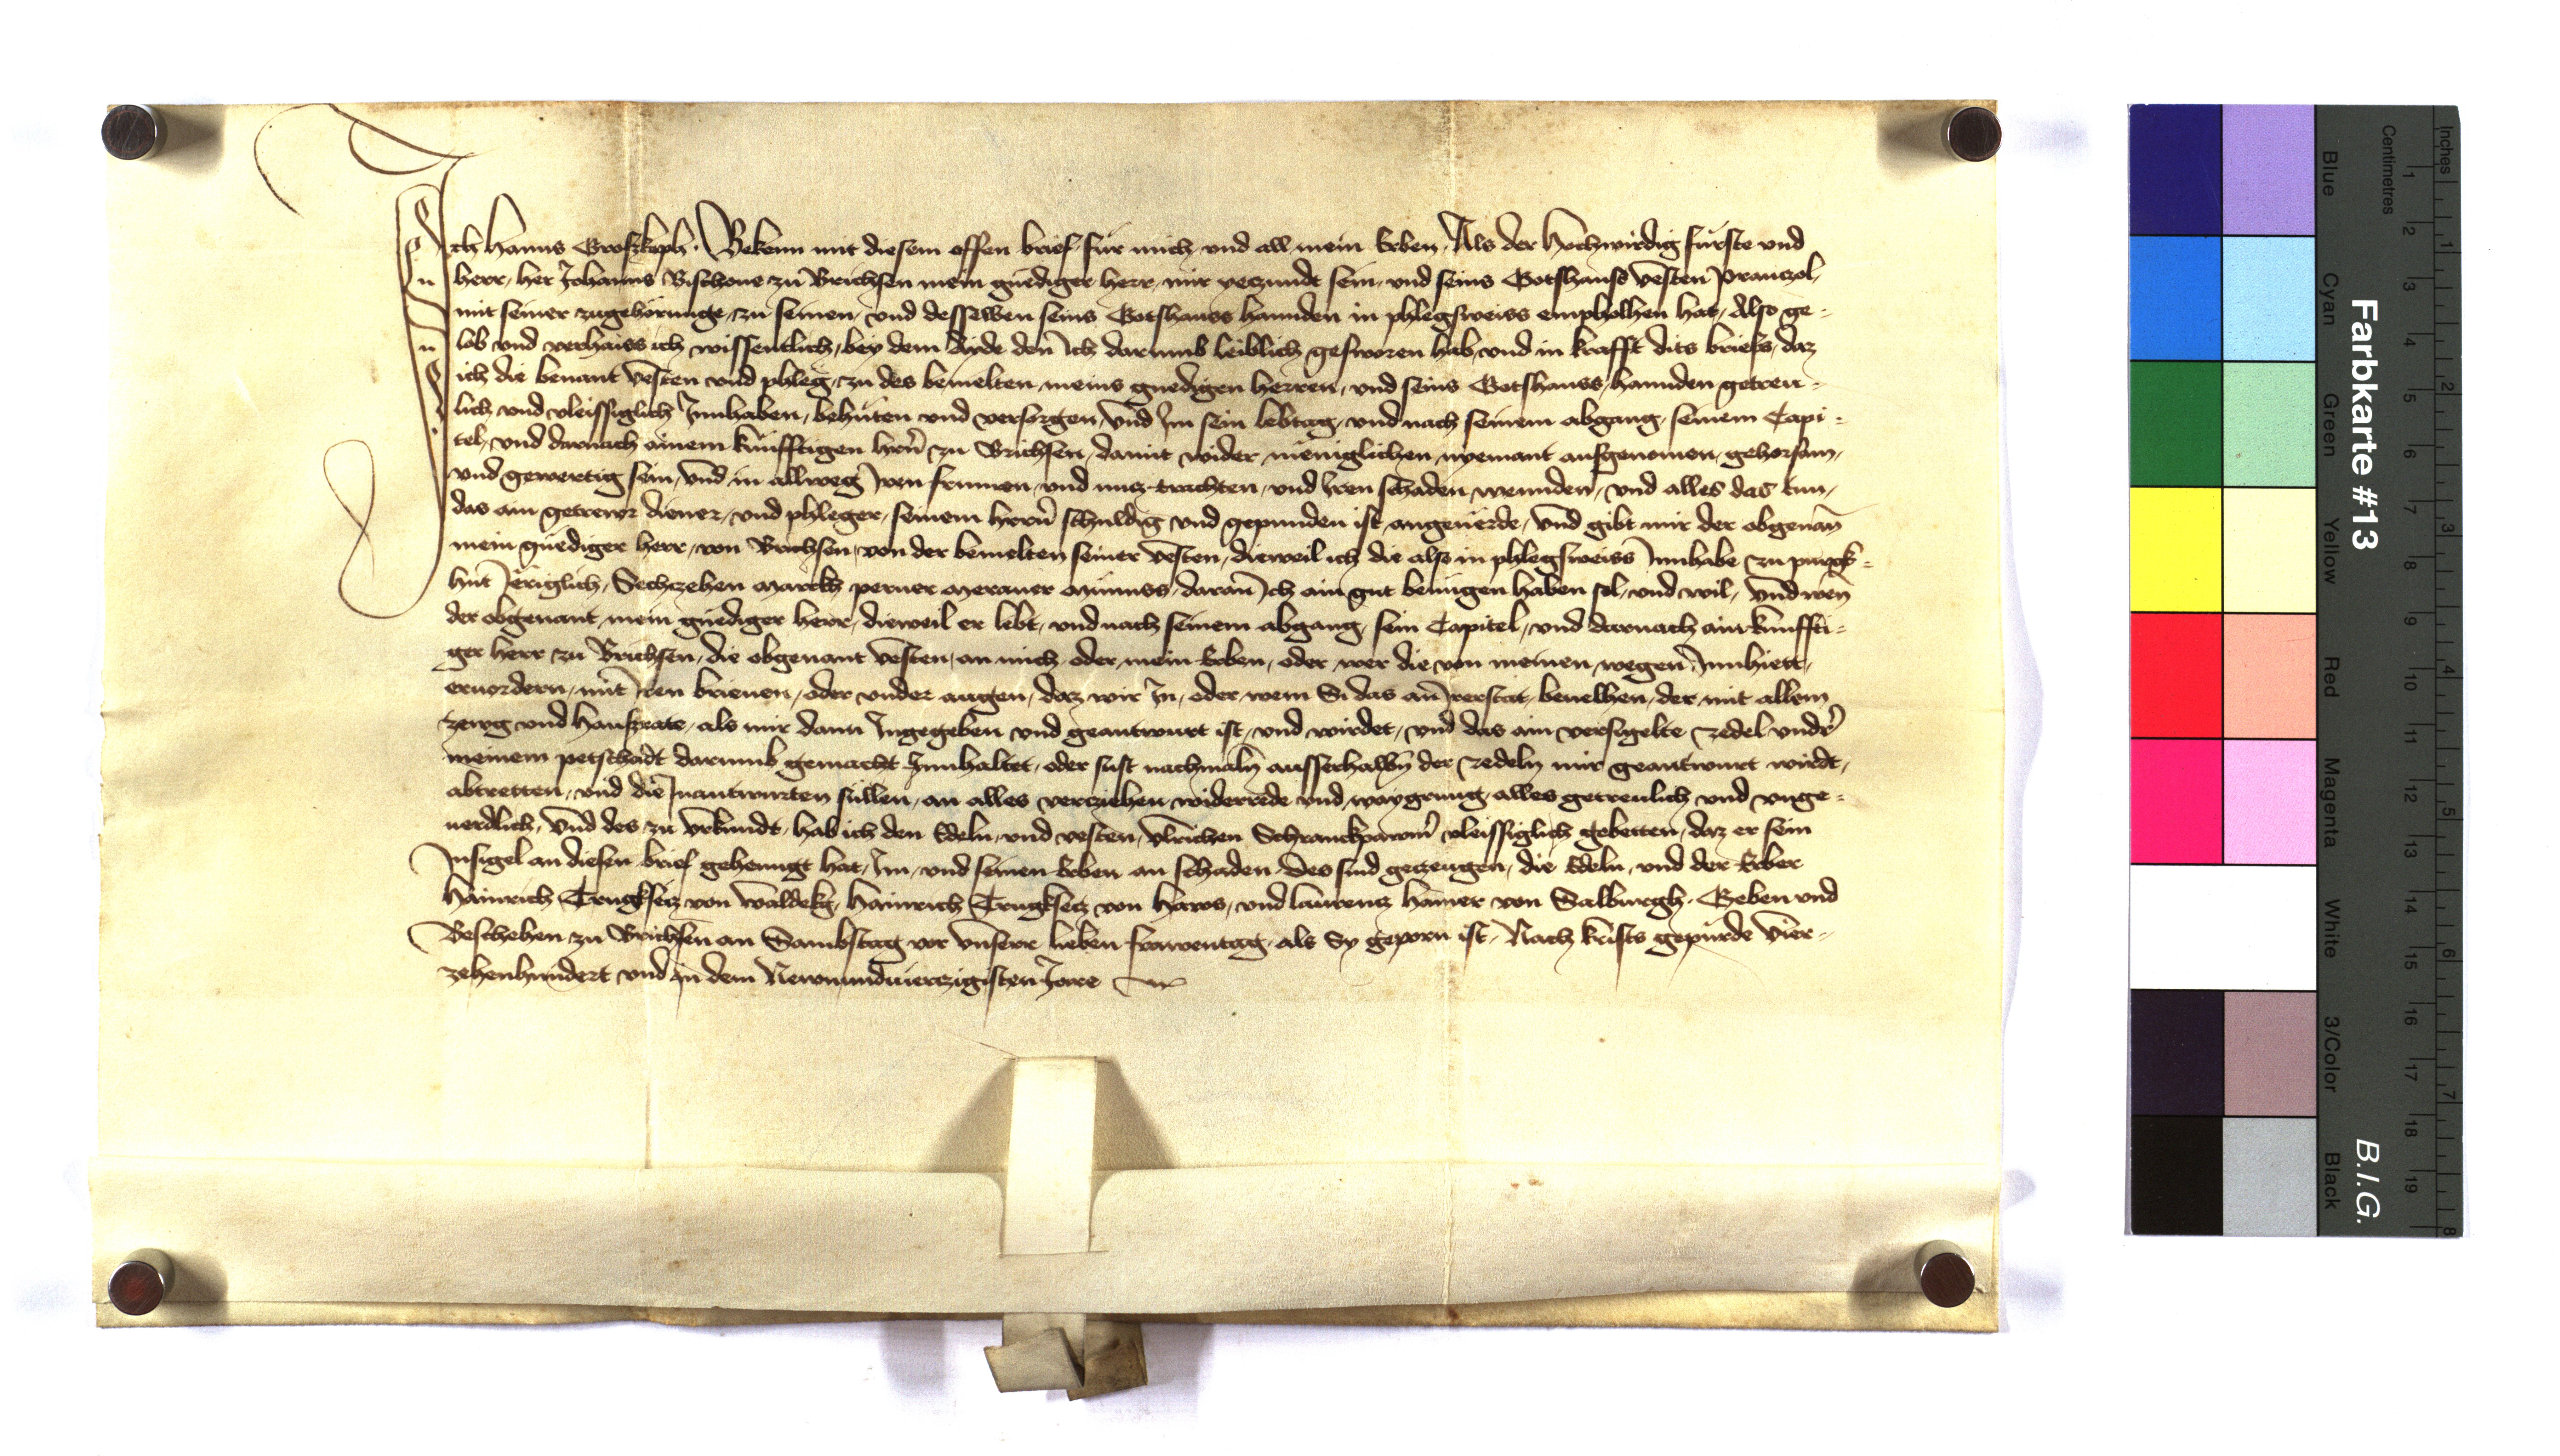 Ich Hanns Groszkoph. Bekenn mit diesem offen brief fur mich und all mein Erben, Als der Hochwirdig furste und
herr, her Johanns Bischoue zu Brichsen mein gnediger herr, mir yeczundt sein, und seins Gotshauss vesten Pranczol,
mit seiner zugehörunge, zu seinen, und desselben seins Gotshauss hannden in phlegsweiss empholhen hat, Also ge-
lob und verhaiss ich wissentlich, bey dem Aide den Ich darumb leiblich gesworen hab, und in krafft dits briefs, daz
ich die benant vesten und phleg, zu des bemelten, meins gnedigen herren, und seins Gotshauss, hannden getreu-
lich und vleissiglich Innhaben, behuten und versorgen, und Im sein lebtag, und nach seinem abgang, seinem Capi-
tel, und darnach ainem kunfftigen hern zu Brichsen, damit wider meniglichen, nyemant ausgenomen, gehorsam,
und gewertig sein, und in allweg Iren frumen, und nucz trachten, und Iren schaden wennden, und alles das tun,
das ain getrewr diener, und phleger, seinem herrn schuldig und gepunden ist, angeuerde, und gibt mir der obgenan
mein gnediger herr, von Brichsen, von der bemelten seiner vesten, dieweil ich die also in phlegsweiss Innhabe zu purgk-
hut Jeriglich, Sechczehen Marckh perner Meraner Munss, daran Ich ain gut benugen haben sol, und wil, und wen
der obgenant, mein gnediger herr, dieweil er lebt, und nach seinem abgang, sein Capitel, und darnach ain kunffti-
ger herr zu Brichsen, die obgenant vesten, an mich, oder, mein Erben, oder, wer die von meinen, wegen, Innhiett,
eruordern, mit Iren brieuen, oder under augen, daz wir In, oder, wem Si das an Irerstat, beuelhen, der, mit allem
zewg und hauszrate, als mir dann Ingegeben und geantwurt ist, und wirdet, und das ain versigelte zedel under
meinem petschadt darumb gemacht Innhaltet, oder sust nachmaln ausserhalbn der zedeln mir geantwurt wirdt,
abtretten, und die Inantwurten sullen, an alles verziehen widerrede und, waygrung, alles getreulich und unge-
uerdlich, Und des zu urkundt, hab ich den Edeln, und vesten, Ulrichen Schranckpawm vleissiglich gebetten, daz er sein
Insigel an diesen brief gehenngt hat, Im, und seinen Erben an schaden, des sind geczeugen, die Edeln, und der Erber
Hainrich Trugksecz von Waldekg, Hainrich Trugksecz von Haws, und laurencz Hamer von Salburgh. Geben und
Bescheben zu Brichsen an Sambstag vor unserr lieben frawentag, als Sy geporn ist, Nach krists gepurde vier-
zehenhundert und in dem Newnundvierczigisten Jare
Farbkarte #13
B.I.G.
Inches
Centimetres
1 2 3 4 5 6 7 8 9 10 11 12 13 14 15 16 17 18 19
1 2 3 4 5 6 7 8
Blue Cyan Green Yellow Red Magenta White 3/Color Black